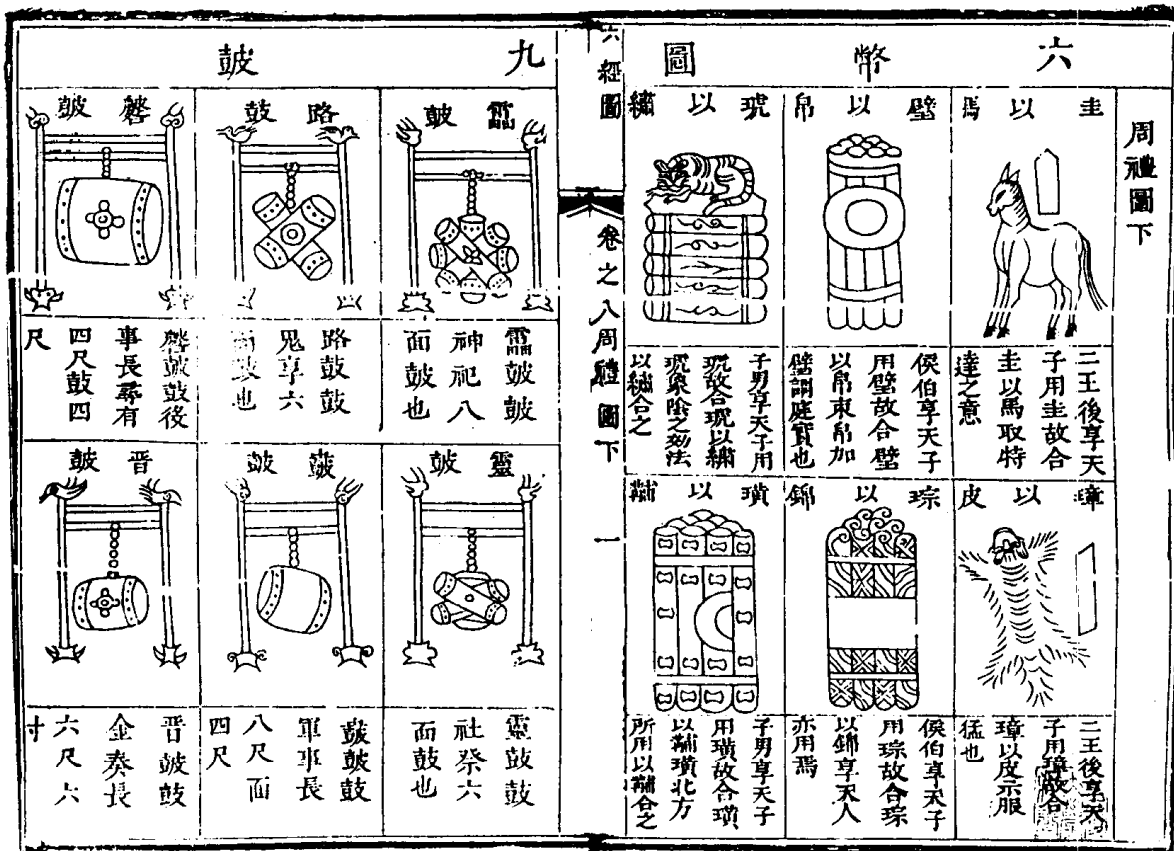 周禮圖下
六幣圖
圭以馬
二王後享天
子用圭故合
圭以馬取特
達之意
璧以帛
侯伯享天子
用璧故合璧
以帛束帛加
璧謂庭實也
琥以繡
子男享天子用
琥故合琥以繡
琥象陰之効法
以繡合之
璋以皮
二王後享天
子用璋故合
璋以皮示服
猛也
琮以錦
侯伯享天子
用琮故合琮
以錦享天人
亦用焉
璜以黼
子男享天子
用璜故合璜
以黼璜北方
所用以黼合之
六經圖
卷之八周禮圖下
一
九鼓
靁鼓
靁鼓鼓
神祀八
面鼓也
路鼓
路鼓鼓
鬼享六
面鼓也
鼛鼓
鼛鼓鼓役
事長尋有
四尺鼓四
尺
靈鼓
靈鼓鼓
社祭六
面鼓也
鼖鼓
鼖鼓鼓
軍事長
八尺面
四尺
晉鼓
晉鼓鼓
金奏長
六尺六
寸